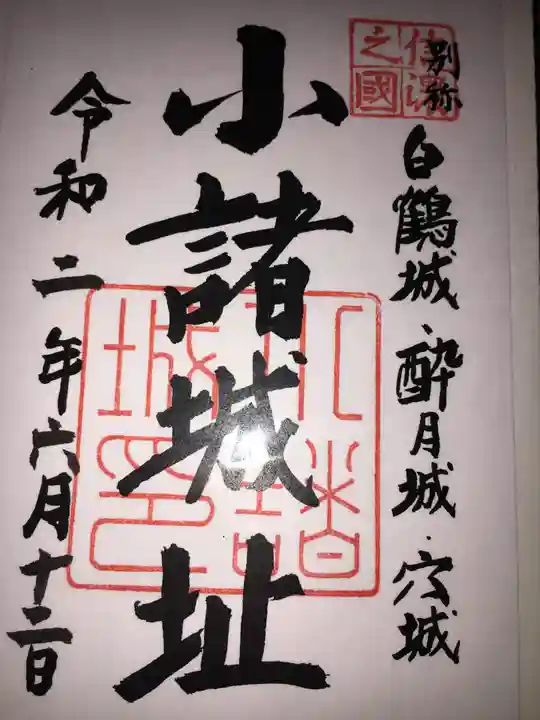 信濃之國
別称
白鶴城・酔月城・穴城
小諸城址
小諸城印
令和二年六月十二日